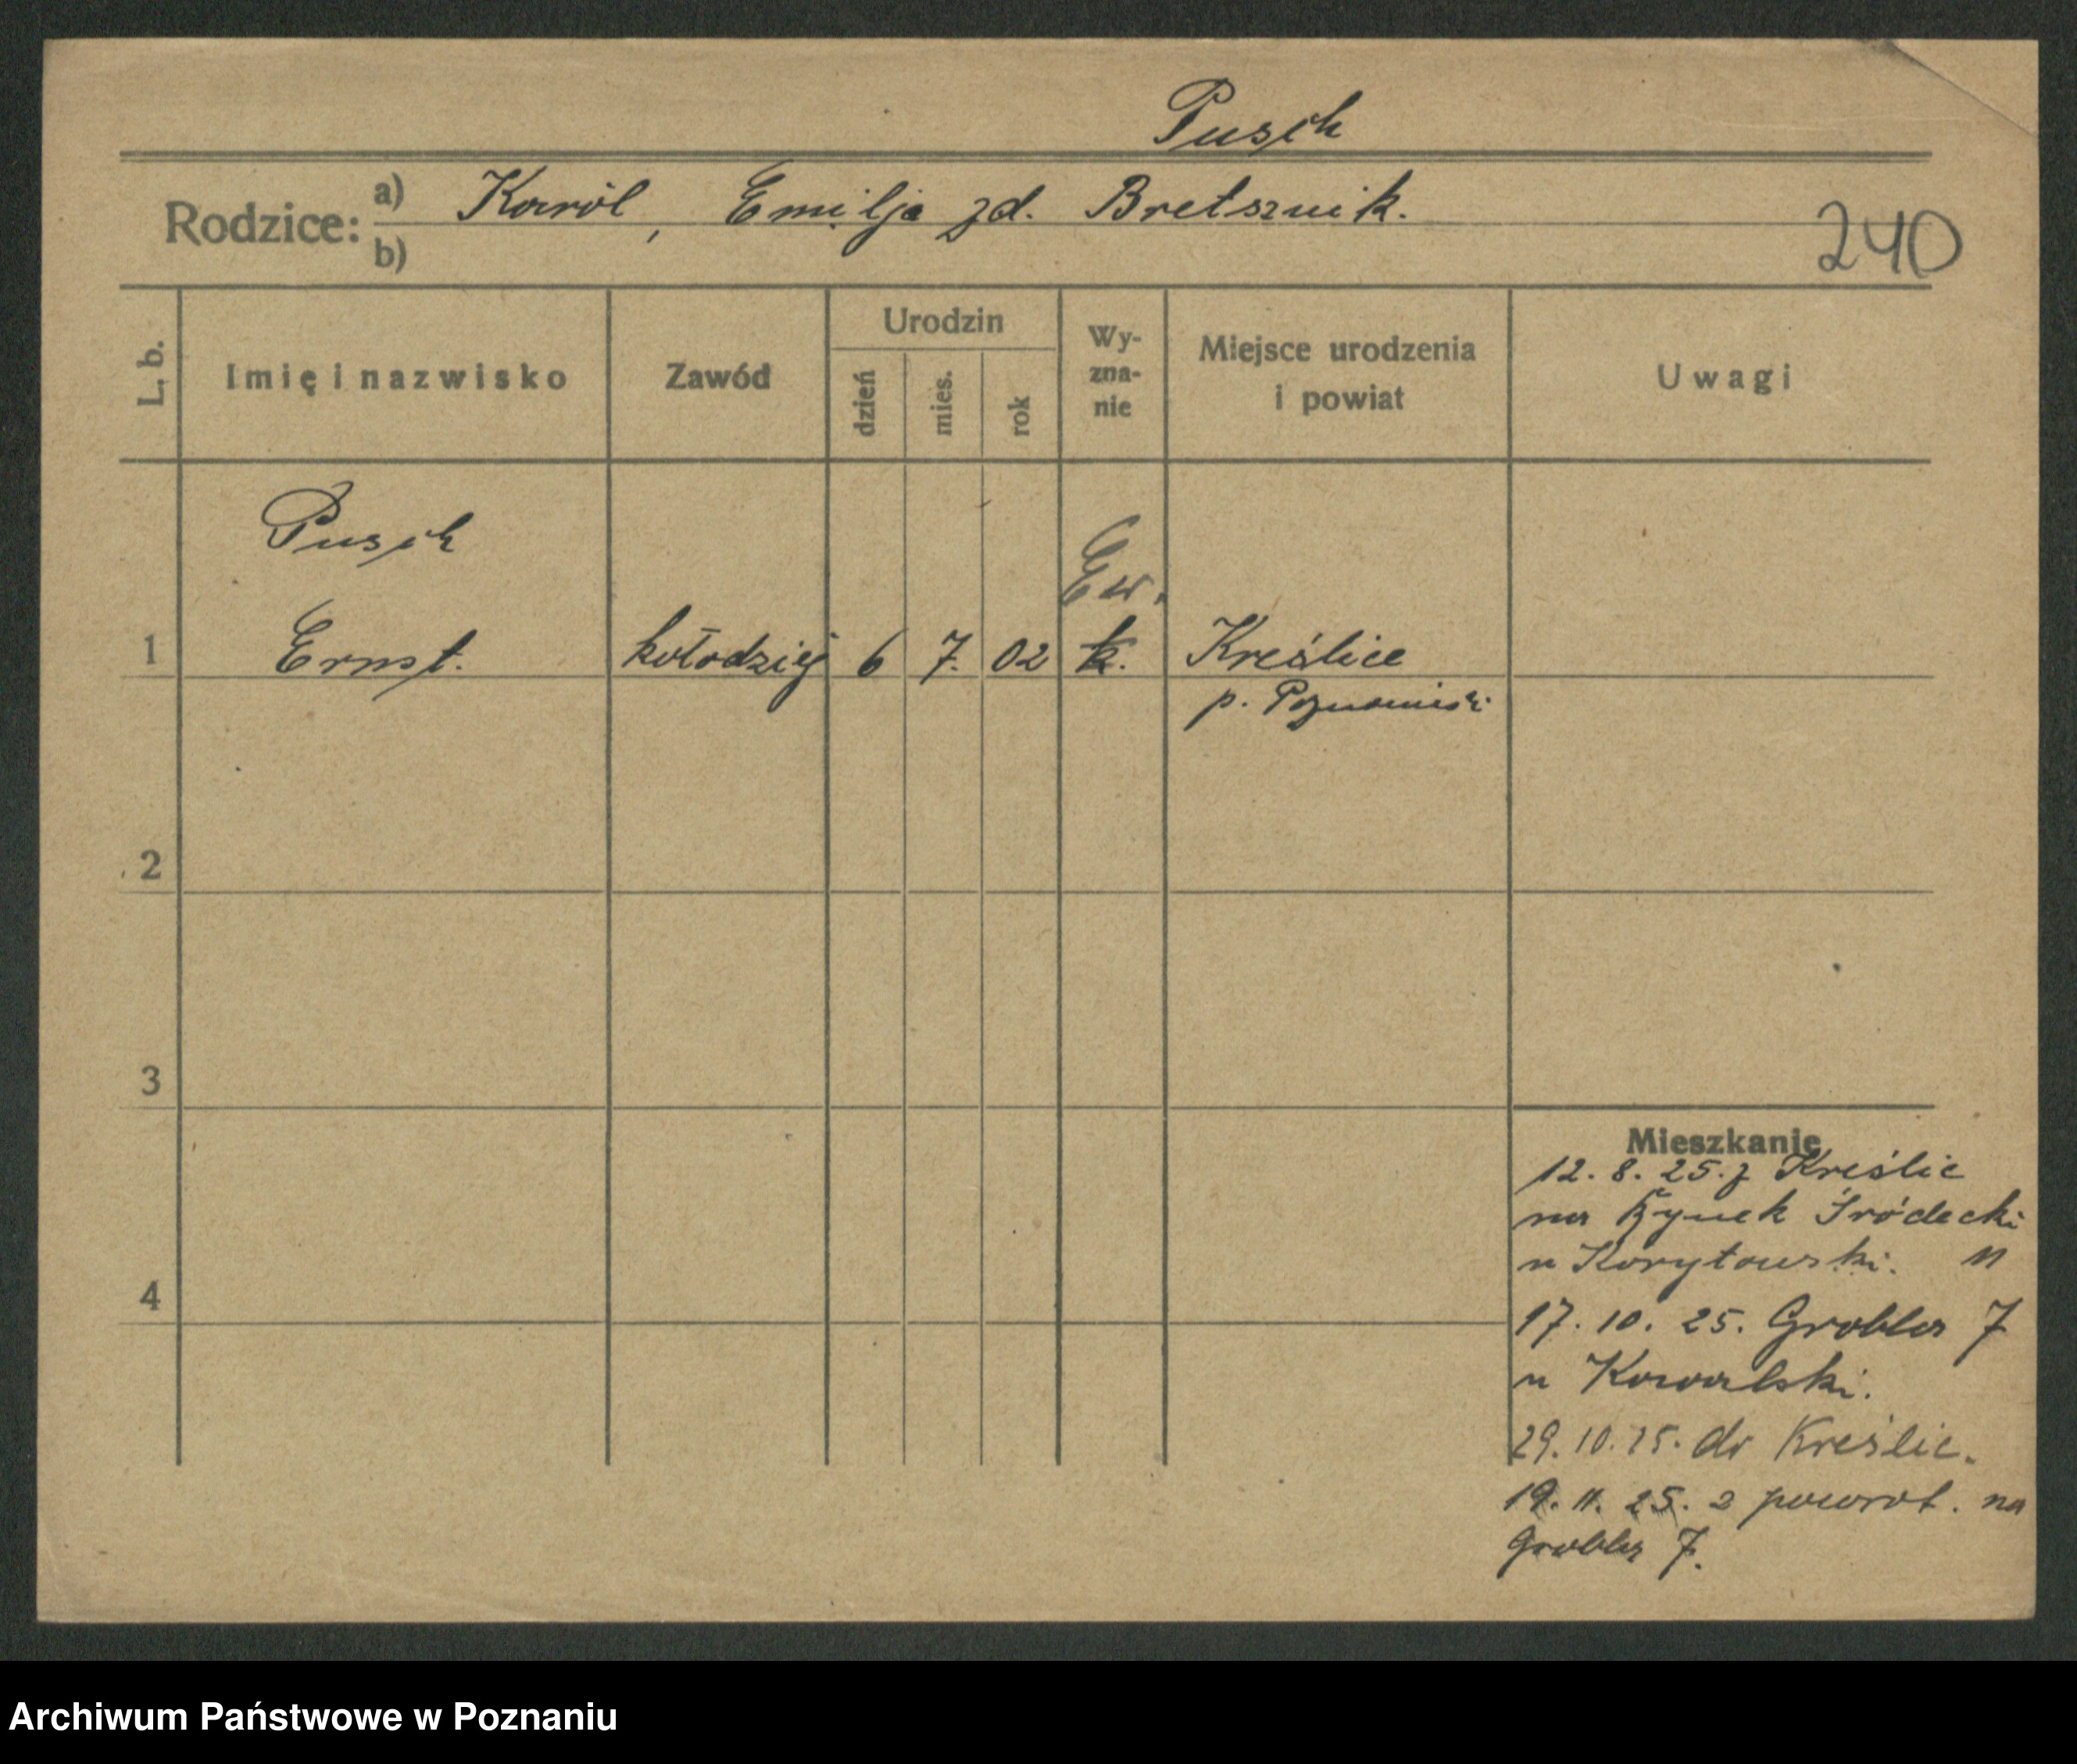 Pusch
Rodzice: a) Karól, Emilja zd. Bretsznik.
b)
240
L. b.
Imię i nazwisko
Zawód
Urodzin
dzień
mies.
rok
Wy-
zna-
nie
Miejsce urodzenia
i powiat
Uwagi
Pusch
Ew.
1 Ernst. kołodziej 6 7. 02 k. Kreślice
p. Poznański
2
3
4
Mieszkanie
12. 8. 25. z Kreślic
na Rynek Śródecki
u Korytowski. 11
17. 10. 25. Grobla 7
u Kowalski.
29. 10. 25. do Kreślic.
19. 11. 25. z powrot. na
Grobla 7.
Archiwum Państwowe w Poznaniu